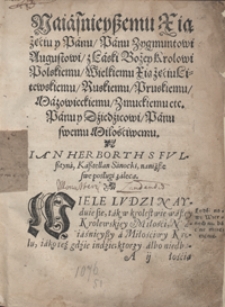 Naiáśnieyßemu Xią
żęćiu y Pánu/ Pánu Zygmuntowi
Augustowi/ z Łáski Bożey Krolowi
Polskiemu/ Wielkiemu Xiążęćiu Li-
tewskiemu/ Ruskiemu/ Pruskiemu/
Mázowieckiemu/ Zmuckiemu etc.
Pánu y Dźiedźicowi/ Pánu
swemu Miłośćiwemu.
IAN HERBORTH S FVL-
sztyná, Kásztellan Sánocki, naniższe
swe posługi záleca.
WIELE LVDZI NAY
duie się, ták w krolestwie wászey
Krolewskiey Miłośći N
áiáśnieyszy á Miłośćiwy Kro-
lu, iáko też gdzie indziey, ktorzy álbo niedbá-
A ij łośćią